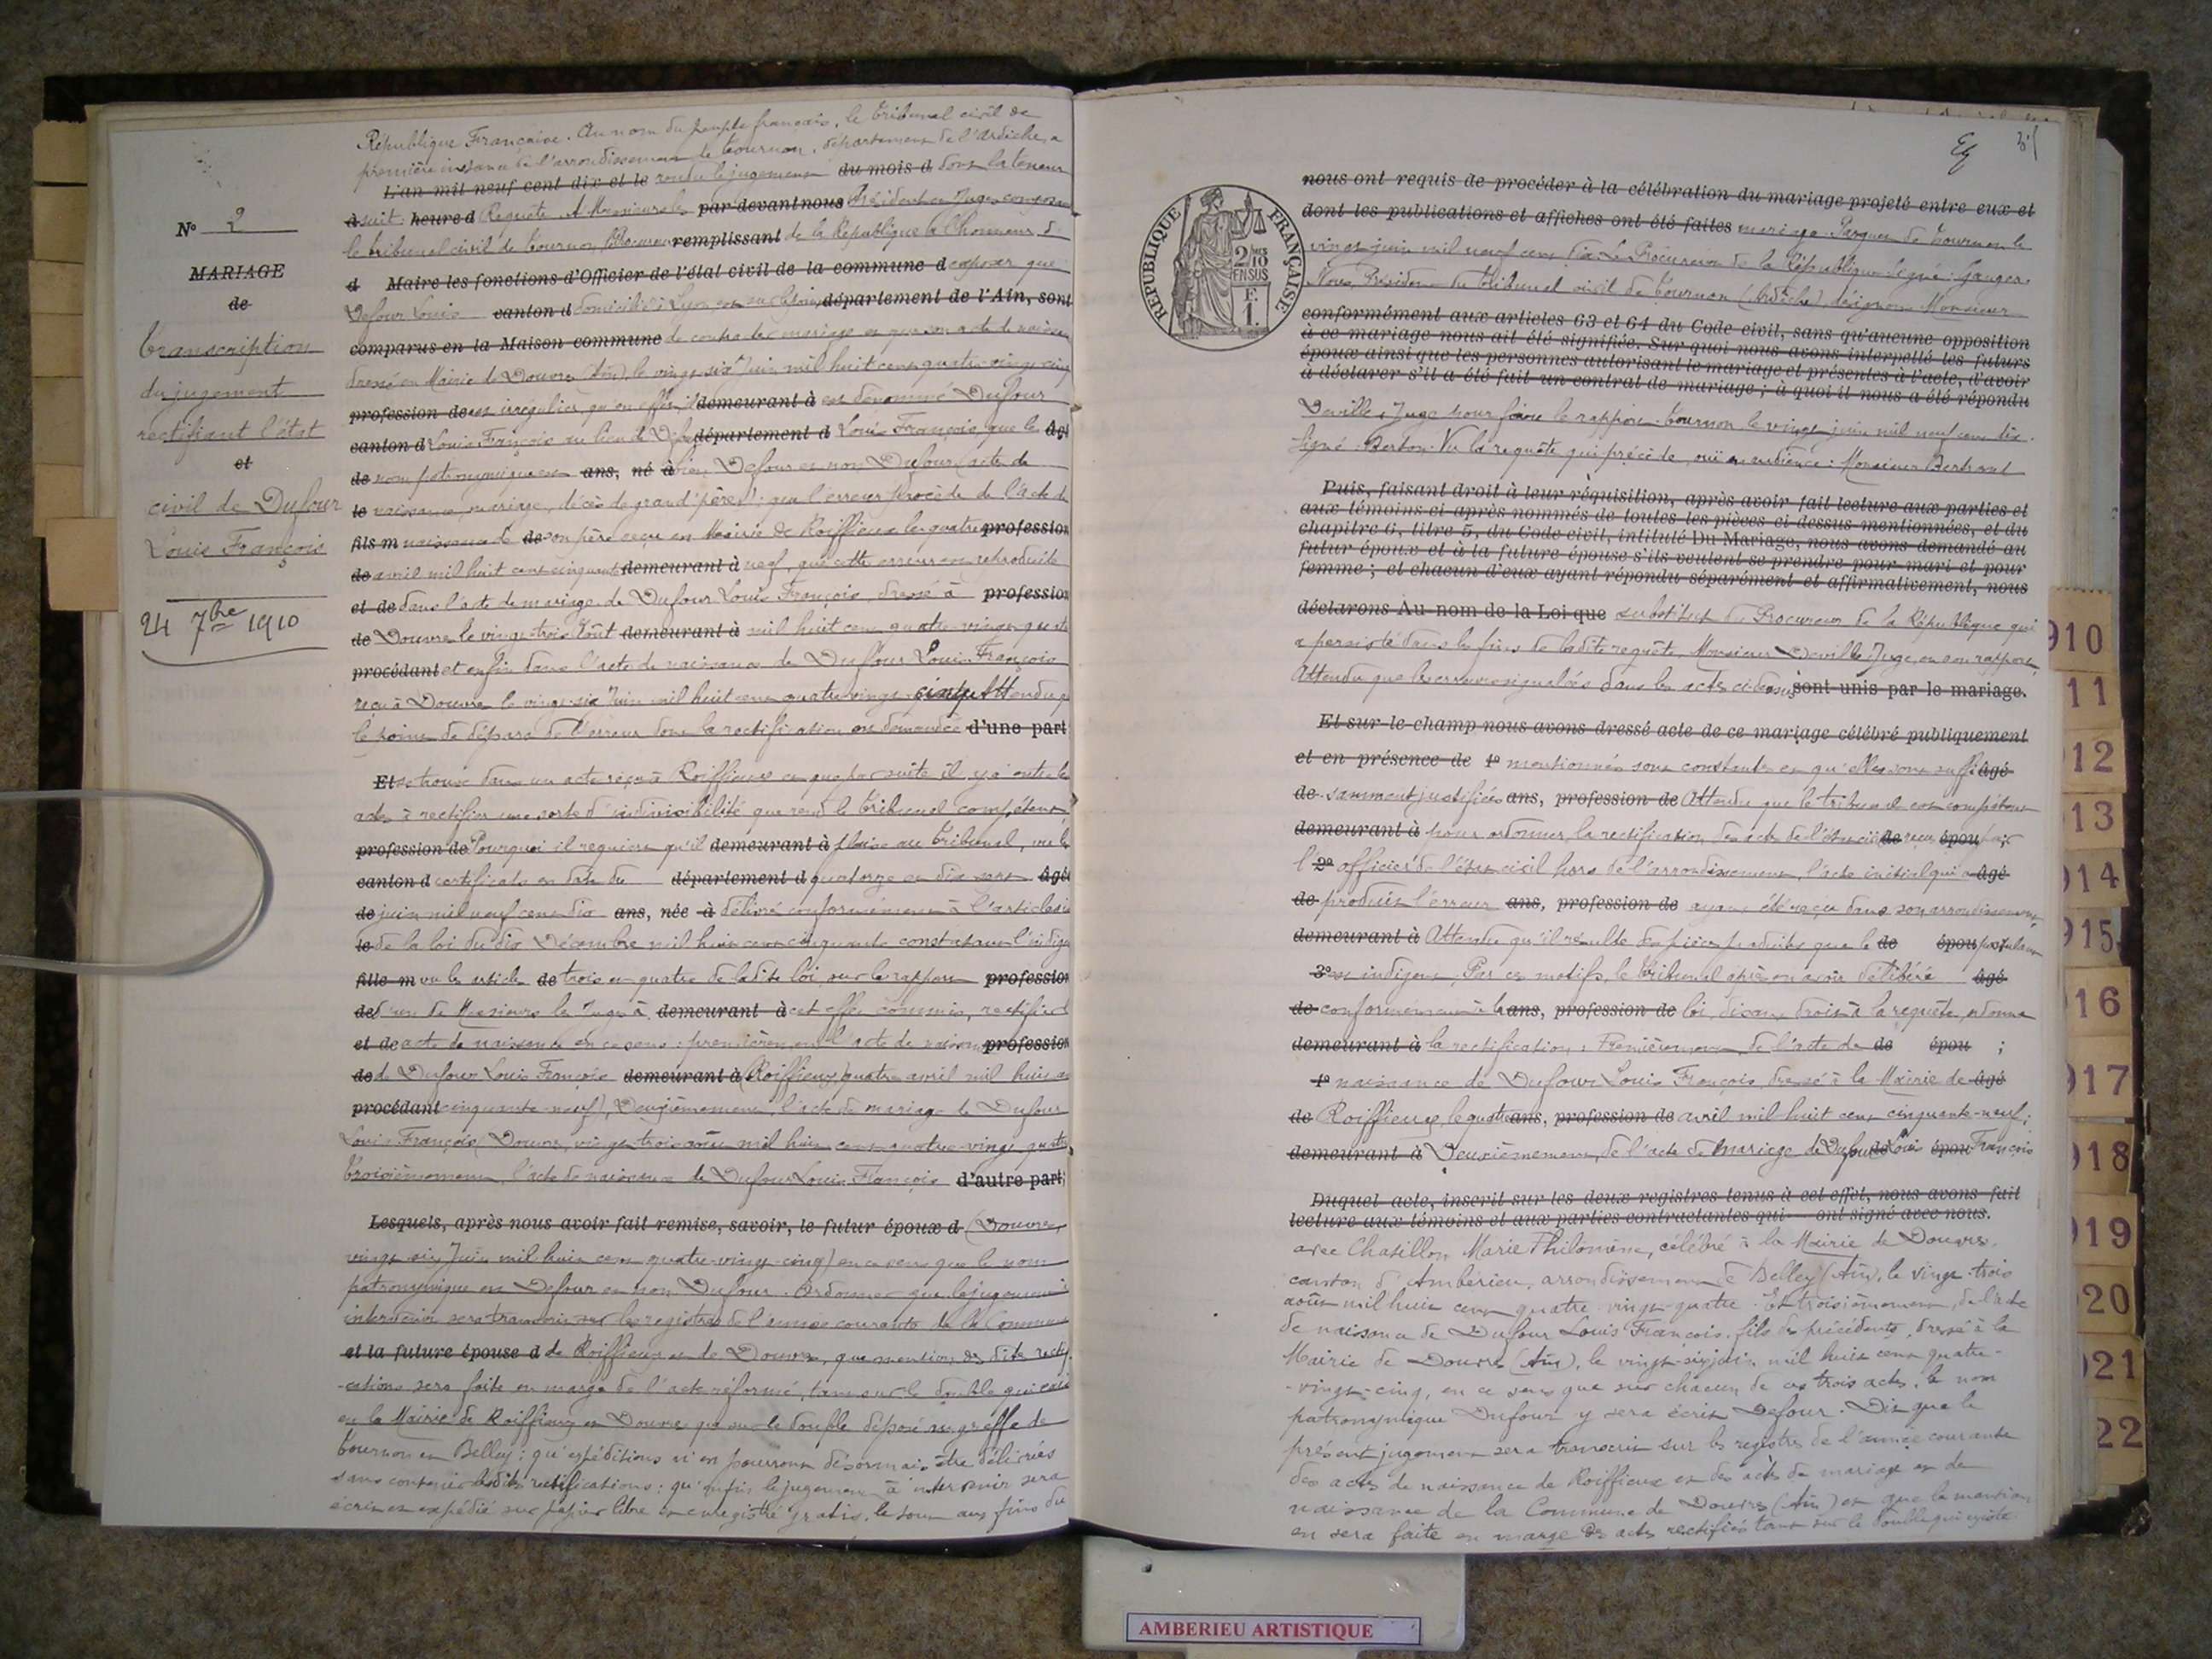 République Française. Au nom du peuple français, le tribunal civil de
première instance de l'arrondissement de Tournon, département de l'Ardèche, a
L'an mil neuf cent dix et le rendu le jugement du mois d dont la teneur
à suit: heure d Requête A Messieurs les par devant nous Président et Juges composant
le tribunal civil de Tournon, remplissant de la République a l'honneur de
d Maire les fonctions d'Officier de l'état civil de la commune d exposer que:
Defour Louis canton d domicilié à Lyon, est sur le point, département de l'Ain, sont
comparus en la Maison commune de contracter mariage et que son acte de naissance
dressé en Mairie de Douvres (Ain), le vingt-six Juin mil huit cent quatre-vingt-cinq
profession de est irrégulier, qu'en effet, il demeurant à est dénommé Dufour
canton d Louis François au lieu de département d Louis François, que le âgé
de nom patronymique est ans, né à bien Defour et non Dufour (acte de
le naissance, mariage, décès de grand'père); que l'erreur procède de l'acte de
fils m naissance de de son père reçu en Mairie de Roiffieux le quatre profession
de avril mil huit cent cinquante demeurant à neuf, que cette erreur est reproduite
et de dans l'acte de mariage de Dufour Louis François, dressé à profession
de Douvres le vingt-trois Août demeurant à mil huit cent quatre-vingt-quatre
procédant et enfin dans l'acte de naissance de Dufour Louis François
reçu à Douvres le vingt-six Juin mil huit cent quatre-vingt-cinq Attendu que
le point de départ de l'erreur dont la rectification est demandée d'une part
Et se trouve dans un acte reçu à Roiffieux et que par suite il y a entre les
actes à rectifier une sorte d'indivisibilité que rend le tribunal compétent
profession de Pourquoi il requiert qu'il demeurant à plaise au tribunal, vu le
canton d certificats en date du département d quatorze et dix sept âgé
de juin mil neuf cent dix ans, née à délivré conformément à l'article six
le de la loi du dix Décembre mil huit cent cinquante constatant l'indigence
fille m vu les articles de trois et quatre de ladite loi, sur le rapport profession
de d'un de Messieurs les Juges à demeurant à cet effet commis, rectifier
et de acte de naissance en ce sens: premièrement l'acte de naissance profession
de de Dufour Louis François demeurant à (Roiffieux, quatre avril mil huit cent
procédant cinquante-neuf), Deuxièmement, l'acte de mariage de Dufour
Louis François (Douvres, vingt-trois août mil huit cent quatre-vingt-quatre
troisièmement, l'acte de naissance de Dufour Louis François d'autre part;
Lesquels, après nous avoir fait remise, savoir, le futur époux d (Douvres,
vingt-six Juin mil huit cent quatre-vingt-cinq) en ce sens que le nom
patronymique est Defour et non Dufour. Ordonner que le jugement à
intervenir sera transcrit sur les registres de l'année courante de la Commune
et la future épouse d de Roiffieux et de Douvres, que mention des dites rectifi-
-cations sera faite en marge de l'acte réformé, tant sur le double qui existe
en la Mairie de Roiffieux et Douvres que sur le double déposé au greffe de
Tournon et Belley; qu'expéditions n'en pourront désormais être délivrées
sans contenir lesdites rectifications; qu'enfin le jugement à intervenir sera
écrit et expédié sur papier libre et enregistré gratis, le tout aux fins du
N° 2
MARIAGE
de
Transcription
du jugement
rectifiant l'état
et
civil de Dufour
Louis François
24 7bre 1910
RÉPUBLIQUE FRANÇAISE
2/10 EN SUS
F. 1.
nous ont requis de procéder à la célébration du mariage projeté entre eux et
dont les publications et affiches ont été faites mariage. Parquet de Tournon le
vingt juin mil neuf cent dix. Le Procureur de la République Signé: Gauger.
Nous, Président du tribunal civil de Tournon (Ardèche) désignons Monsieur
conformément aux articles 63 et 64 du Code civil, sans qu'aucune opposition
à ce mariage nous ait été signifiée. Sur quoi nous avons interpellé les futurs
époux ainsi que les personnes autorisant le mariage et présentes à l'acte, d'avoir
à déclarer s'il a été fait un contrat de mariage; à quoi il nous a été répondu
Deville, Juge pour faire le rapport. Tournon le vingt juin mil neuf cent dix.
Signé: Vu la requête qui précède, ouï en audience: Monsieur Bertrand
Puis, faisant droit à leur réquisition, après avoir fait lecture aux parties et
aux témoins ci-après nommés de toutes les pièces ci-dessus mentionnées, et du
chapitre 6, titre 5, du Code civil, intitulé Du Mariage, nous avons demandé au
futur époux et à la future épouse s'ils veulent se prendre pour mari et pour
femme; et chacun d'eux ayant répondu séparément et affirmativement, nous
déclarons Au nom de la Loi que substitut du Procureur de la République qui
a persisté dans les fins de ladite requête, Monsieur Deville Juge, en son rapport,
Attendu que les erreurs signalées dans les actes ci-dessus sont unis par le mariage.
Et sur-le-champ nous avons dressé acte de ce mariage célébré publiquement
et en présence de 1° mentionnés sont constantes et qu'elles sont suffi âgé
de -samment justifiées ans, profession de Attendu que le tribunal est compétent
demeurant à pour ordonner la rectification des actes de l'état civil de reçus épou par
l' 2° officier de l'état civil hors de l'arrondissement, l'acte initial qui a âgé
de produit l'erreur ans, profession de ayant été reçu dans son arrondissement
demeurant à Attendu qu'il résulte des pièces produites que le de épou postulant
3° est indigent, Par ces motifs, le tribunal après en avoir délibéré âgé
de conformément à la ans, profession de loi, disant droit à la requête, ordonne
demeurant à la rectification: Premièrement, de l'acte de de épou ;
4° naissance de Dufour Louis François, dressé à la Mairie de âgé
de Roiffieux le quatre ans, profession de avril mil huit cent cinquante-neuf;
demeurant à Deuxièmement, de l'acte de mariage de Dufour de Louis épou François
Duquel acte, inscrit sur les deux registres tenus à cet effet, nous avons fait
lecture aux témoins et aux parties contractantes qui ont signé avec nous.
avec Chatillon Marie Philomène, célébré à la Mairie de Douvres.
canton d'Ambérieu, arrondissement de Belley (Ain), le vingt-trois
août mil huit cent quatre-vingt-quatre. Et troisièmement, de l'acte
de naissance de Dufour Louis François, fils des précédents, dressé à la
Mairie de Douvres (Ain), le vingt-six juin mil huit cent quatre-
-vingt-cinq, en ce sens que sur chacun de ces trois actes, le nom
patronymique Dufour y sera écrit Defour. Dit que le
présent jugement sera transcrit sur les registres de l'année courante
des actes de naissance de Roiffieux et des actes de mariage et de
naissance de la Commune de Douvres (Ain) et que la mention
en sera faite en marge des actes rectifiés tant sur le double qui existe
910
11
912
13
914
915
916
917
918
919
920
921
22
AMBERIEU ARTISTIQUE